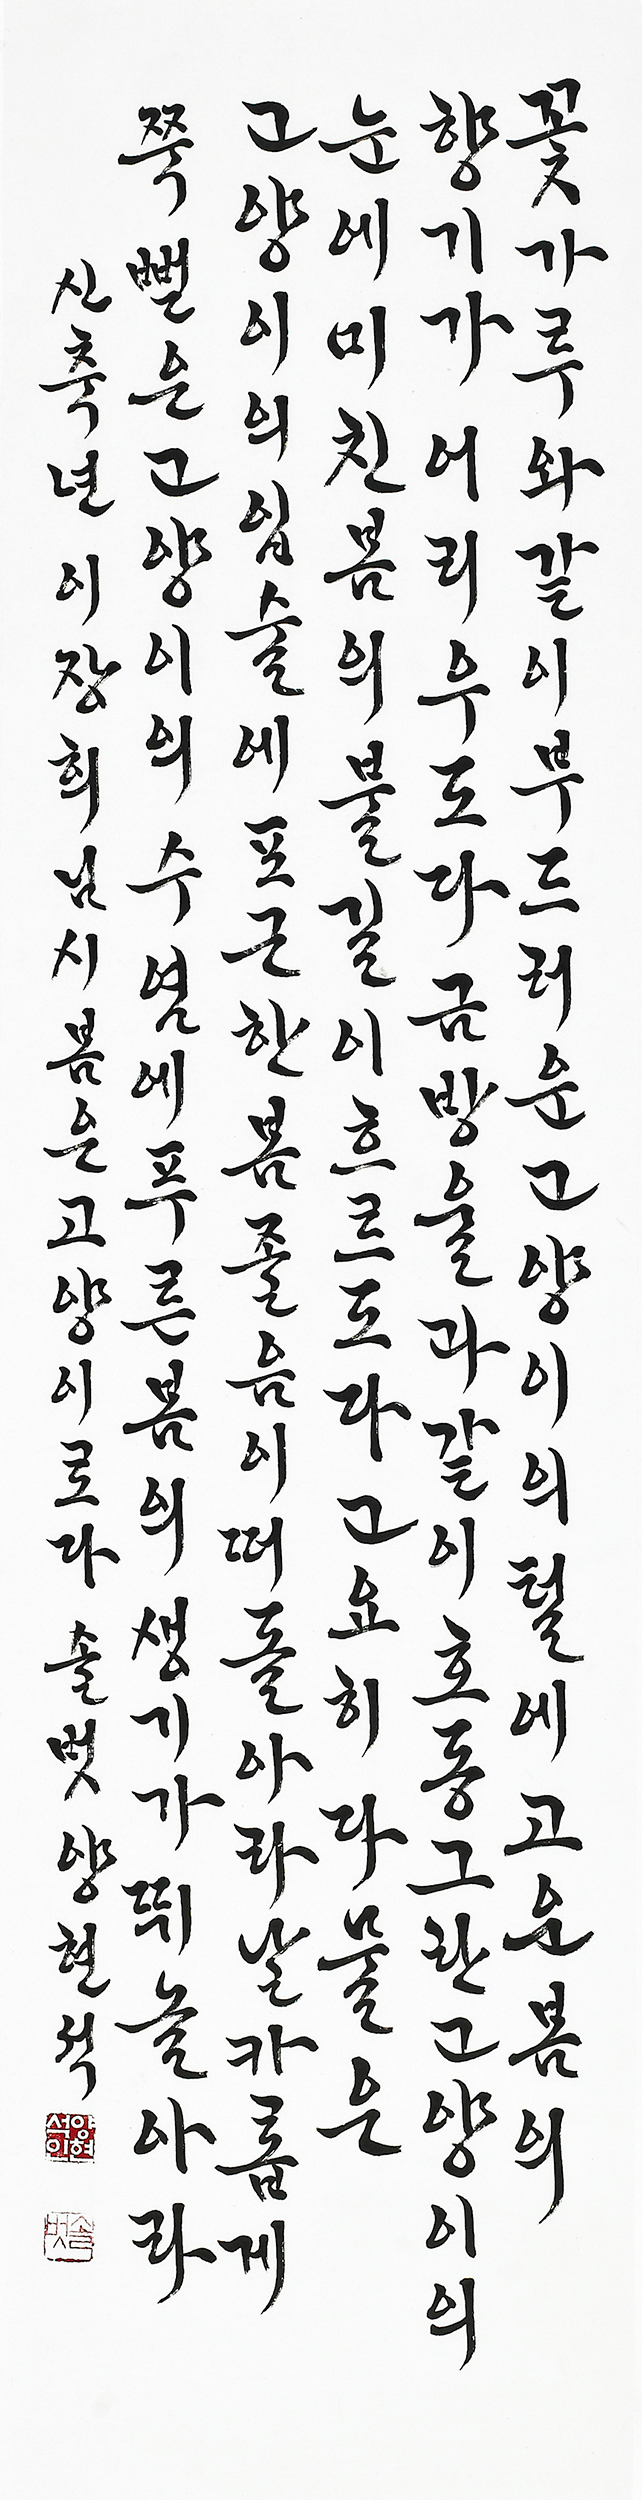 꽃가루와 같이 부드러운 고양이의 털에 고은 봄의
향기가 어리우도다 금방울과 같이 호동그란 고양이의
눈에 미친 봄의 불길이 흐르도다 고요히 다물은
고양이의 입술에 포근한 봄 졸음이 떠돌아라 날카롭게
쭉 뻗은 고양이의 수염에 푸른 봄의 생기가 뛰놀아라
신축년 이장희님 시 봄은 고양이로다 솔벗 양현석
양현석인
솔벗